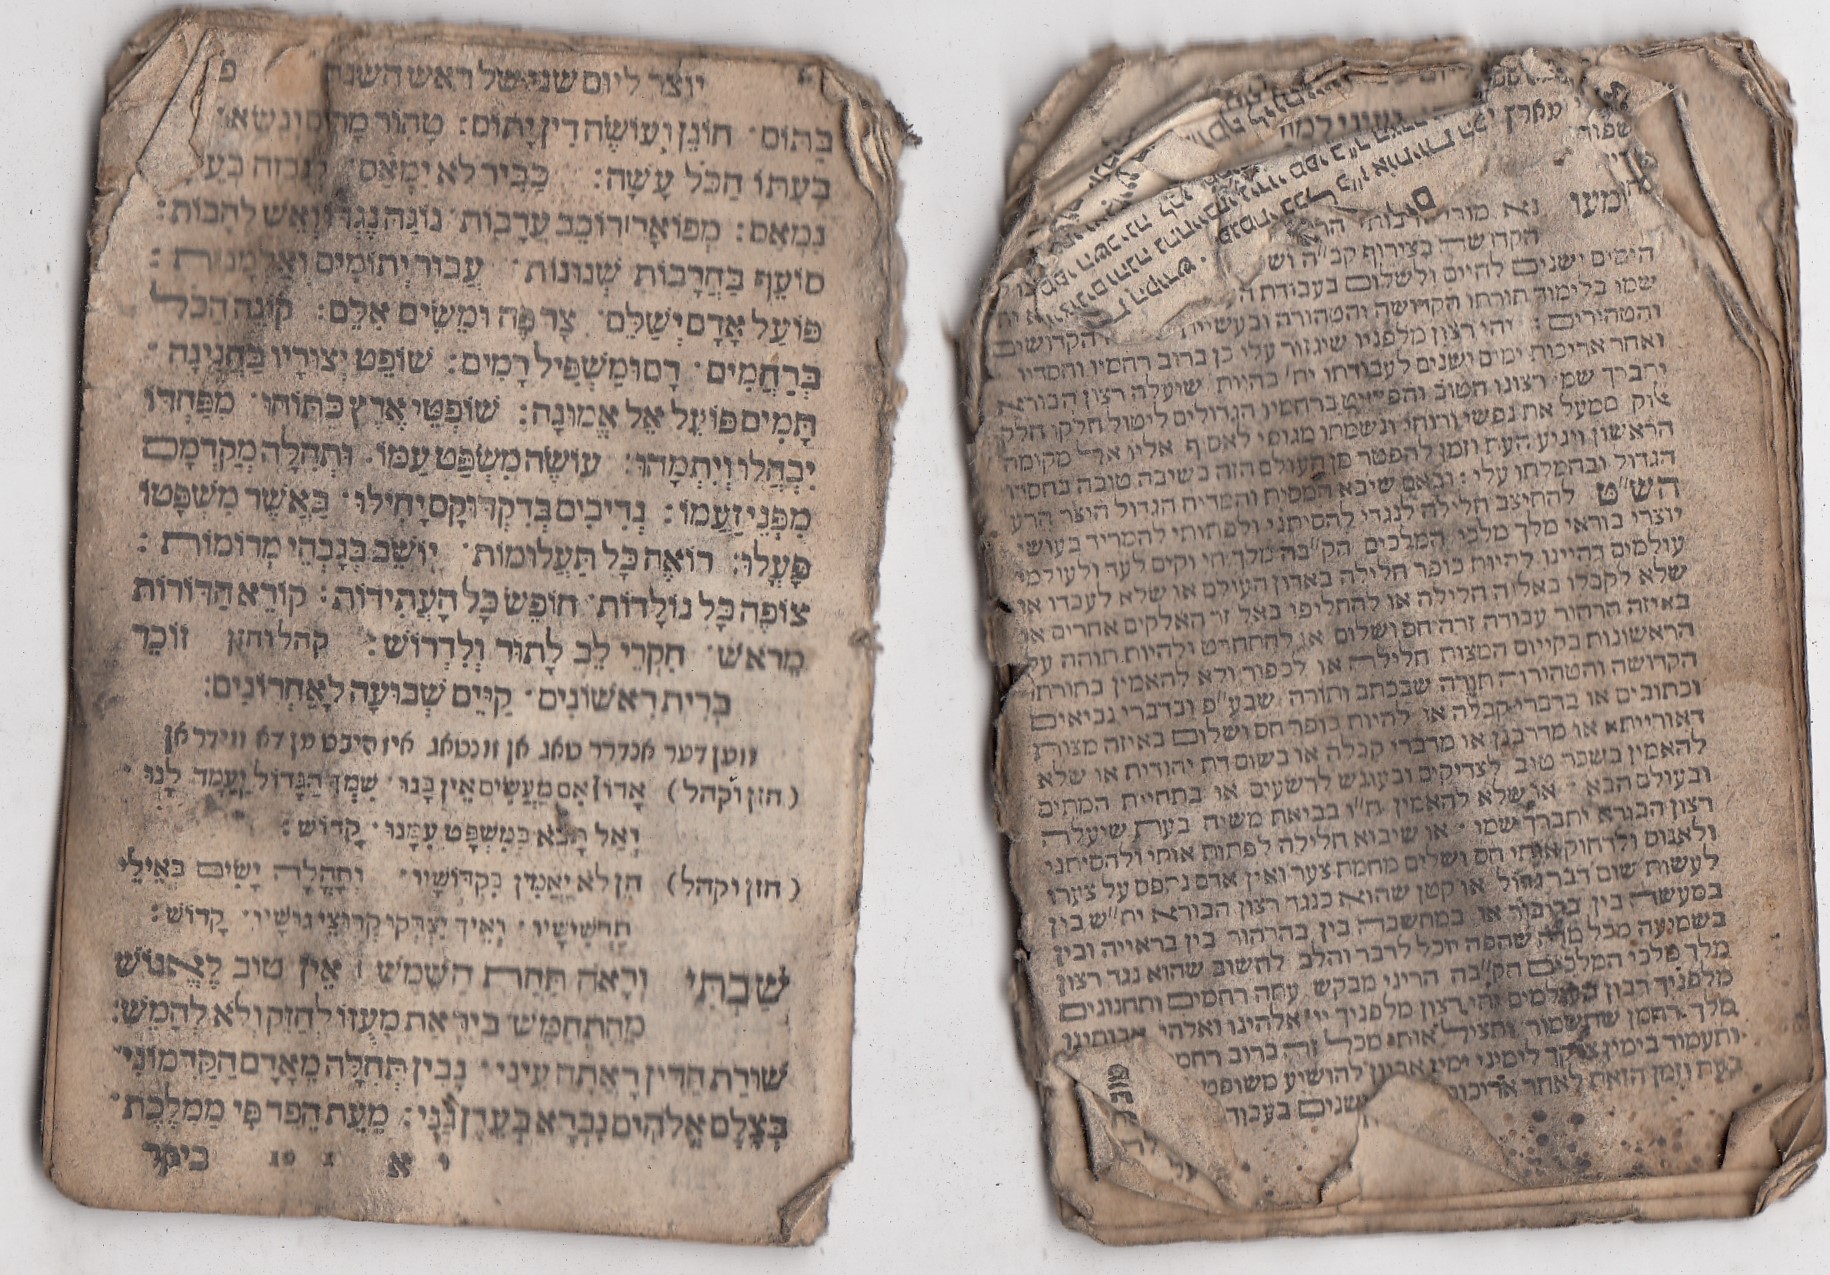 יוצר ליום שני של ראש השנה פ
בַּתּוֹם· חוֹנֵן וְעוֹשֶׂה דִין יָתוֹם: טָהוֹר
בְּעִתּוֹ הַכֹּל עָשָׂה: כַּבִּיר לֹא יִמְאָס·
נְמָאֵס: מְפוֹאָר רוֹכֵב עֲרָבוֹת· נוֹגַהּ נֶגְדּוֹ וְאֵשׁ לְהָבוֹת:
סוֹעֵף בַּחֲרָבוֹת שְׁנוּנוֹת· עֲבוּר יְתוֹמִים וְאַלְמָנוֹת:
פּוֹעַל אָדָם יְשַׁלֵּם· צָר פֶּה וּמֵשִׂים אִלֵּם: קוֹנֵה הַכֹּל
בְּרַחֲמִים· רָם וּמַשְׁפִּיל רָמִים: שׁוֹפֵט יְצוּרָיו בַּחֲנִינָה·
תָּמִים פּוֹעֵל אֵל אֱמוּנָה: שׁוֹפְטֵי אֶרֶץ כְּתוֹהוּ· מִפַּחְדּוֹ
יִבָּהֲלוּ וְיִתְמָהוּ: עוֹשֶׂה מִשְׁפַּט עַמּוֹ· וּתְחִלָּה מְקַדְּמָם
מִפְּנֵי זַעֲמוֹ: נְדִיבִים בְּדִקְדּוּקָם יָחִילוּ· בַּאֲשֶׁר מִשְׁפָּטוֹ
פָּעָלוּ: רוֹאֶה כָּל תַּעֲלוּמוֹת· יוֹשֵׁב בְּגָבְהֵי מְרוֹמוֹת:
צוֹפֶה כָּל נוֹלָדוֹת· חוֹפֵשׂ כָּל הָעֲתִידוֹת: קוֹרֵא הַדּוֹרוֹת
מֵרֹאשׁ· חִקְרֵי לֵב לָתוּר וְלִדְרוֹשׁ: קהל וחזן זוֹכֵר
בְּרִית רִאשׁוֹנִים· קַיֵּים שְׁבוּעָה לָאַחֲרוֹנִים:
ווען דער אנדרר טאג אן זונטאג איז היבט מן דא ווידר אן
(חזן וקהל) אָדוֹן אִם מַעֲשִׂים אֵין בָּנוּ· שִׁמְךָ הַגָּדוֹל יַעֲמָד לָנוּ·
וְאַל תָּבֹא בְּמִשְׁפָּט עִמָּנוּ· קָדוֹשׁ:
(חזן וקהל) הֵן לֹא יַאֲמִין בִּקְדוֹשָׁיו· וְתָהֳלָה יָשִׂים בְּאֵילֵי
תַרְשִׁישָׁיו· וְאֵיךְ יִצְדְּקוּ קְרוּצֵי גוּשָׁיו· קָדוֹשׁ:
שַׁבְתִּי וְרָאֹה תַּחַת הַשֶּׁמֶשׁ אֵין טוֹב לֶאֱנוֹשׁ
מֵהִתְחַמֵּשׁ בְּיִרְאַת מָעֻזּוֹ לַחֲזֹק וְלֹא לְהַמֵּשׁ:
שׁוּרַת הַדִּין רָאֲתָה עֵינִי· נָבִין תְּחִלָּה מֵאָדָם הַקַּדְמוֹנִי·
בְּצֶלֶם אֱלֹהִים נִבְרָא בְּעֵדֶן גַּנָּי: מֵעֵת הֵפֵר פִּי מַמְלֶכֶת·
י א 1 10 כיקר
הקדושה בצירוף קב״ה
הימים ישנים לחיים ולשלום בעבודת
שמו בלימוד תורתו הקדושה והטהורה ובעשיית הקדושים
והטהורים: יהי רצון מלפניו שיגזור עלי כן ברוב רחמיו וחסדיו
ואחר אריכות ימים ושנים לעבודתו ית׳ בהיות שיעלה רצון הבורא
יתברך שמו רצונו הטוב ברחמיו הגדולים ליטול חלקו חלק
אלוק ממעל את נפשי ורוחי ונשמתי מגופי לאסוף אליו אל מקומה
הראשון ויגיע העת וזמן להפטר מן העולם הזה בשיבה טובה בחסדו
הגדול ובחמלתו עלי: ובאם שיבא המסית והמדיח הגדול היצר הרע
הש״ט להתיצב חלילה לנגדי להסיתני ולפתותי להמריד בעושי
יוצרי בוראי מלך מלכי המלכים הק״בה מלך חי וקים לעד ולעולמי
עולמים דהיינו להיות כופר חלילה באדון העולם או שלא לעבדו או
שלא לקבלו באלוה חלילה או להחליפו באל זר האלקים אחרים או
באיזה הרהור עבודה זרה חס ושלום או להתחרט ולהיות תוהה על
הראשונות בקיום המצות חלילה או לכפור ולא להאמין בתורתו
הקדושה והטהורה תורה שבכתב ותורה שבע״פ ובדברי נביאים
וכתובים או בדברי קבלה או להיות כופר חס ושלום באיזה מצות
דאורייתא או מדרבנן או מדברי קבלה או בשום דת יהודית או שלא
להאמין בשכר טוב לצדיקים ובעונש לרשעים או בתחיית המתים
ובעולם הבא או שלא להאמין ח״ו בביאת משיח בעת שיעלה
רצון הבורא יתברך שמו· או שיבוא חלילה לפתות אותי ולהסיתני
ולאנוס ולדחוק אותי חס ושלום מחמת צער ואין אדם נתפס על צערו
לעשות שום דבר גדול או קטן שהוא כנגד רצון הבורא ית״ש בין
במעשה בין בדיבור או במחשבה בין בהרהור בין בראייה ובין
בשמיעה מכל מה שהפה יוכל לדבר והלב לחשוב שהוא נגד רצון
מלך מלכי המלכים הק״בה הריני מבקש עתה רחמים ותחנונים
מלפניך רבון העולמים יהי רצון מלפניך יי׳ אלהינו ואלהי אבותינו
מלך רחמן שתשמור ותציל אותי מכל זה ברוב רחמ
ותעמוד בימין צדקך לימיני ימין אביון להושיע משופט
בעת וזמן הזאת לאחר אריכות ושנים בעבוד